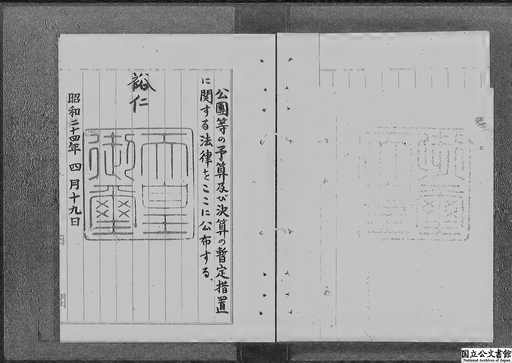 公團等の予算及び決算の暫定措置
に関する法律をここに公布する、
裕仁
天皇
御璽
昭和二十四年 四月十九日
国立公文書館
National Archives of Japan